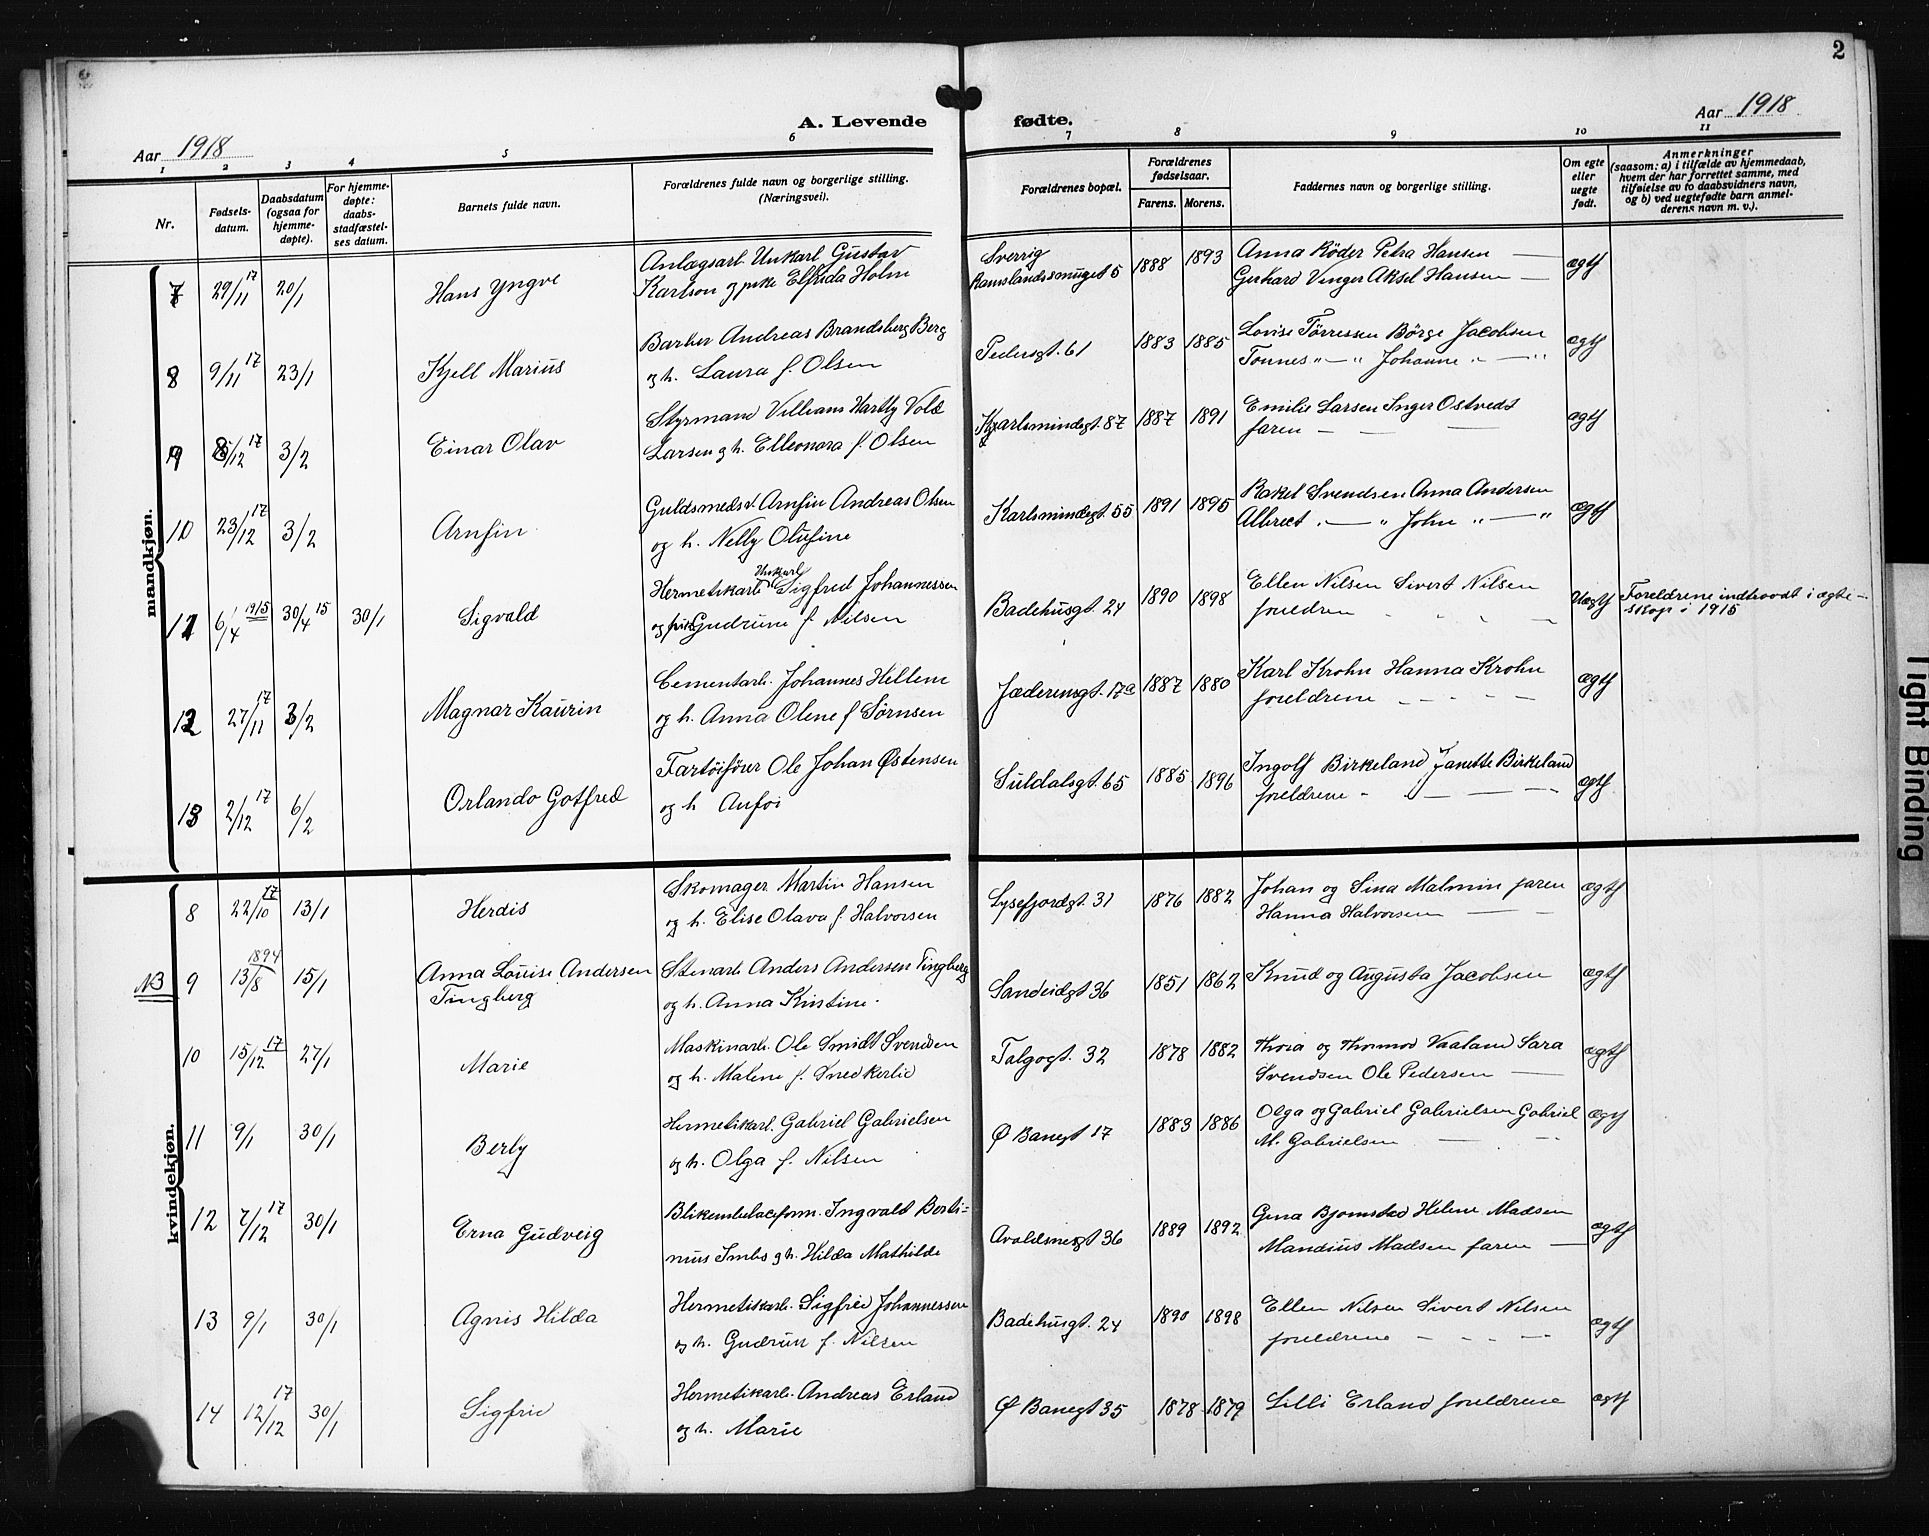 2
A. Levende fødte.
Aar 1918
Aar 1918
1 2 3 4 5 6 7 8 9 10 11
Nr.
Fødsels-
datum.
Daabsdatum
(ogsaa for
hjemme-
døpte).
For hjemme-
døpte:
daabs-
stadfæstel-
ses datum.
Barnets fulde navn.
Forældrenes fulde navn og borgerlige stilling.
(Næringsvei).
Forældrenes bopæl.
Forældrenes
fødselsaar.
Farens. Morens.
Faddernes navn og borgerlige stilling.
Om egte
eller
uegte
født.
Anmerkninger
(saasom: a) i tilfælde av hjemmedaab,
hvem der har forrettet samme, med
tilføielse av to daabsvidners navn,
og b) ved uegtefødte barn anmel-
derens navn m. v.).
mandkjøn.
7 29/11 17 20/1 Hans Yngve
Anlægsarb. Unkarl Gustav
Karlson og pike Elfrida Holm
Sverrig
Ramslandssmuget 5 1888 1893
Anna Röder Petra Hansen —
Gerhard Vinger Aksel Hansen — ægtf
8 9/11 17 23/1 Kjell Marius
Barber Andreas Brandsberg Berg
og h. Laura f. Olsen
Pedersgt. 61 1883 1885
Lovise Tørressen Börge Jacobsen
Tonnes " — " Johanne " — " ægtf
9 8/12 17 3/2 Einar Olav
Styrmand Villiam Hartly Vold
Larsen og h. Elleonora f. Olsen
Karlsmindegt. 87 1887 1891
Emilie Larsen Inger Ostvedt
faren — — — ægtf
10 23/12 17 3/2 Arnfin
Guldsmeds. Arnfin Andreas Olsen
og h. Nelly Olufine
Karlsmindegt. 55 1891 1895
Rakel Svendsen Anna Andersen
Albrect " — " John " — " ægtf
11 6/4 1915 30/4 15 30/1 Sigvald
Hermetikarb. Unkarl Sigfred Johannessen
og pike Gudrune f. Nilsen
Badehusgt. 24 1890 1898
Ellen Nilsen Sivert Nilsen
foreldren — Uægtf
Foreldrene indtraadt i ægte-
skap i 1915
12 27/11 17 3/2 Magnar Kaurin
Cementarb. Johannes Hellem
og h. Anna Olene f Sørnsen
Jæderensgt. 17a 1887 1880
Karl Krohn Hanna Krohn
foreldrene - - - - ægtf
13 2/12 17 6/2 Orlando Gotfred
Fartöifører Ole Johan Østensen
og h
Suldalsgt. 65 1885 1896
Ingolf Birkeland Janette Birkeland
foreldrene - — — — ægtf
kvindekjøn.
8 22/10 17 13/1 Herdis
Skomager Martin Hansen
og h. Elise Olava f. Halvorsen
Lysefjordgt. 31 1876 1882
Johan og Sina Malmin faren
Hanna Halvorsen — — ægtf
NB 9 13/8 1894 15/1 Anna Louise Andersen
Tingberg
Stenarb Anders Andersen Tingberg
og h. Anna Kristine.
Sandeidgt 36 1851 1862 Knud og Augusta Jacobsen ægtf
10 15/12 17 27/1 Marie
Maskinarb. Ole Smidt Svendsen
og h. Malene f. Snedkerlid
Talgogt. 32 1878 1882
Thora og Thormod Vaaland Sara
Svendsen Ole Pedersen — ægtf
11 9/1 30/1 Berly
Hermetikarb. Gabriel Gabrielsen
og h. Olga f. Nilsen
Ø Banegt 17 1883 1886
Olga og Gabriel Gabrielsen Gabriel
M. Gabrielsen — — ægtf
12 7/12 17 30/1 Erna Gudveig
Blikemballageform. Ingvald Berti-
nius Imbs og h. Hilda Mathilde
Avaldsnesgt 36 1889 1892
Gina Bjørnstad Helene Madsen
Mandius Madsen faren — ægtf
13 9/1 30/1 Agnis Hilda
Hermetikarb. Sigfred Johannessen
og h. Gudrun f. Nilsen
Badehusgt. 24 1890 1898
Ellen Nilsen Sivert Nilsen
foreldrene - - - — ægtf
14 12/12 17 30/1 Sigfrid
Hermetikarb. Andreas Erland
og h. Marie
Ø Banegt 35 1878 1879 Lilli Erland foreldrene ægtf
Tight Binding